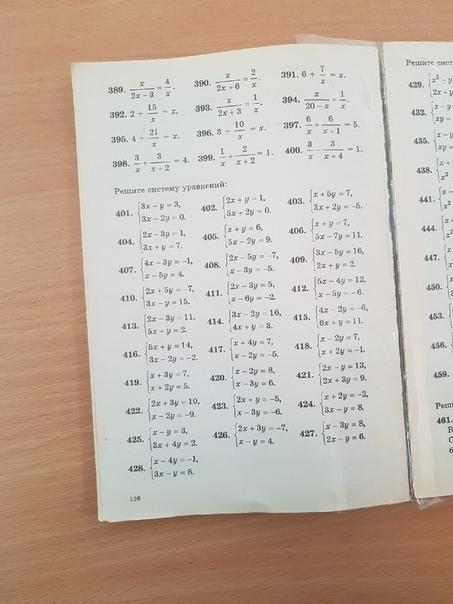 389. x/(2x − 3) = 4/x. 390. x/(2x + 6) = 2/x. 391. 6 + 7/x = x.
392. 2 + 15/x = x. 393. x/(2x + 3) = 1/x. 394. x/(20 − x) = 1/x.
395. 4 + 21/x = x. 396. 3 + 10/x = x. 397. 6/x + 6/(x + 1) = 5.
398. 3/x + 3/(x + 2) = 4. 399. 1/x + 2/(x + 2) = 1. 400. 3/x − 3/(x + 4) = 1.
Решите систему уравнений:
401. {3x − y = 3, 3x − 2y = 0. 402. {2x + y = 1, 5x + 2y = 0. 403. {x + 5y = 7, 3x + 2y = −5.
404. {2x − 3y = 1, 3x + y = 7. 405. {x + y = 6, 5x − 2y = 9. 406. {x + y = 7, 5x − 7y = 11.
407. {4x − 3y = −1, x − 5y = 4. 408. {2x − 5y = −7, x − 3y = −5. 409. {3x − 5y = 16, 2x + y = 2.
410. {2x + 5y = −7, 3x − y = 15. 411. {2x − 3y = 5, x − 6y = −2. 412. {5x − 4y = 12, x − 5y = −6.
413. {2x − 3y = 11, 5x + y = 2. 414. {3x − 2y = 16, 4x + y = 3. 415. {4x − 2y = −6, 6x + y = 11.
416. {5x + y = 14, 3x − 2y = −2. 417. {x + 4y = 7, x − 2y = −5. 418. {x − 2y = 7, x + 2y = −1.
419. {x + 3y = 7, x + 2y = 5. 420. {x − 2y = 8, x − 3y = 6. 421. {2x − y = 13, 2x + 3y = 9.
422. {2x + 3y = 10, x − 2y = −9. 423. {2x + y = −5, x − 3y = −6. 424. {x + 2y = −2, 3x − y = 8.
425. {x − y = 3, 3x + 4y = 2. 426. {2x + 3y = −7, x − y = 4. 427. {x − 3y = 8, 2x − y = 6.
428. {x − 4y = −1, 3x − y = 8.
Решите
429.
432.
435.
438.
441.
444.
447.
450.
453.
456.
459.
461.